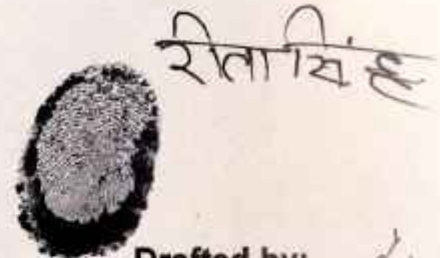 रीता सिंह
Drafted by: